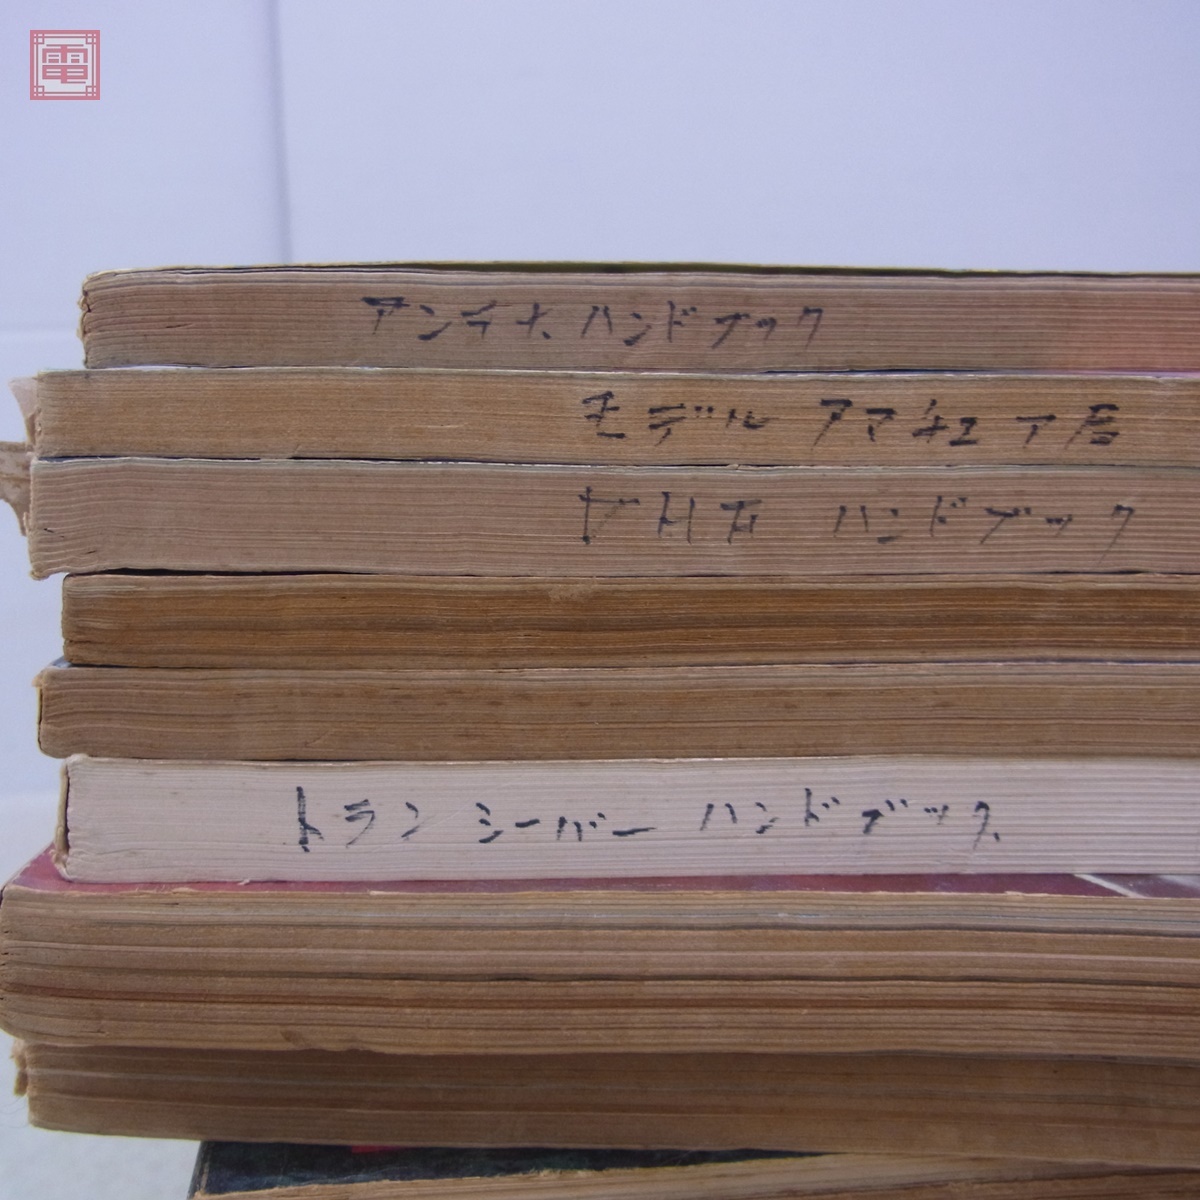 電
アンテナ ハンドブック
モデル アマチュア局
VHF ハンドブック
トランシーバー ハンドブック